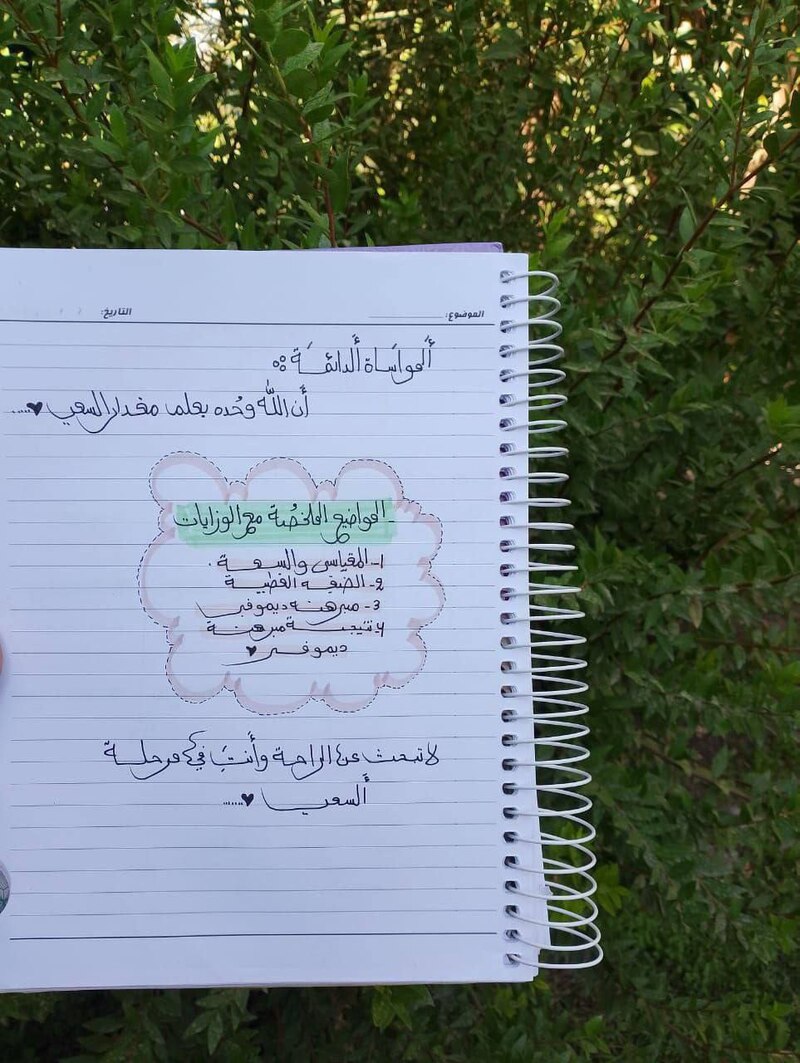 الموضوع: التاريخ:
أَلمواَساة أَلدائمَة
أَن اللّٰه وحُده يعلم مقدار السعي ♥.....
-المواضيع الملخصُة مع الوزايات
1- المقياس والسعة.
2- الصيغه القطبية
3- مبرهنه ديموفي
4- نتيجة مبرهنة
ديموفر ♥
لا تبحث عن الراحة وأَنتَ في مرحلة
أَلسعي ♥......